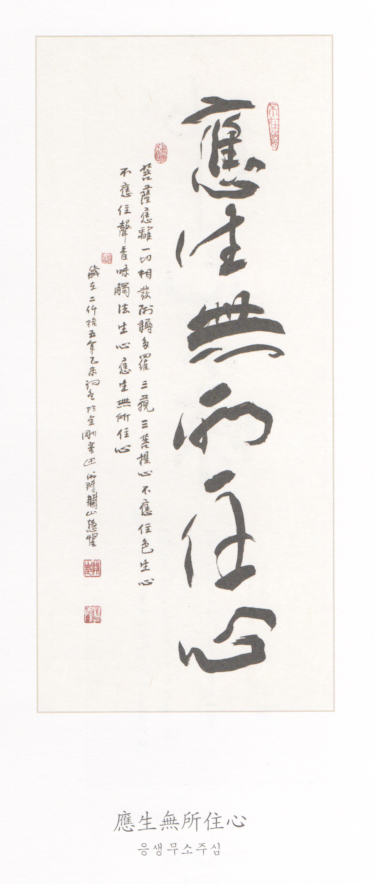 應生無所住心
菩薩應離一切相發阿耨多羅三藐三菩提心不應住色生心
不應住聲香味觸法生心應生無所住心
歲在二仟拾五年乙未初冬於金剛
應生無所住心
응생무소주심